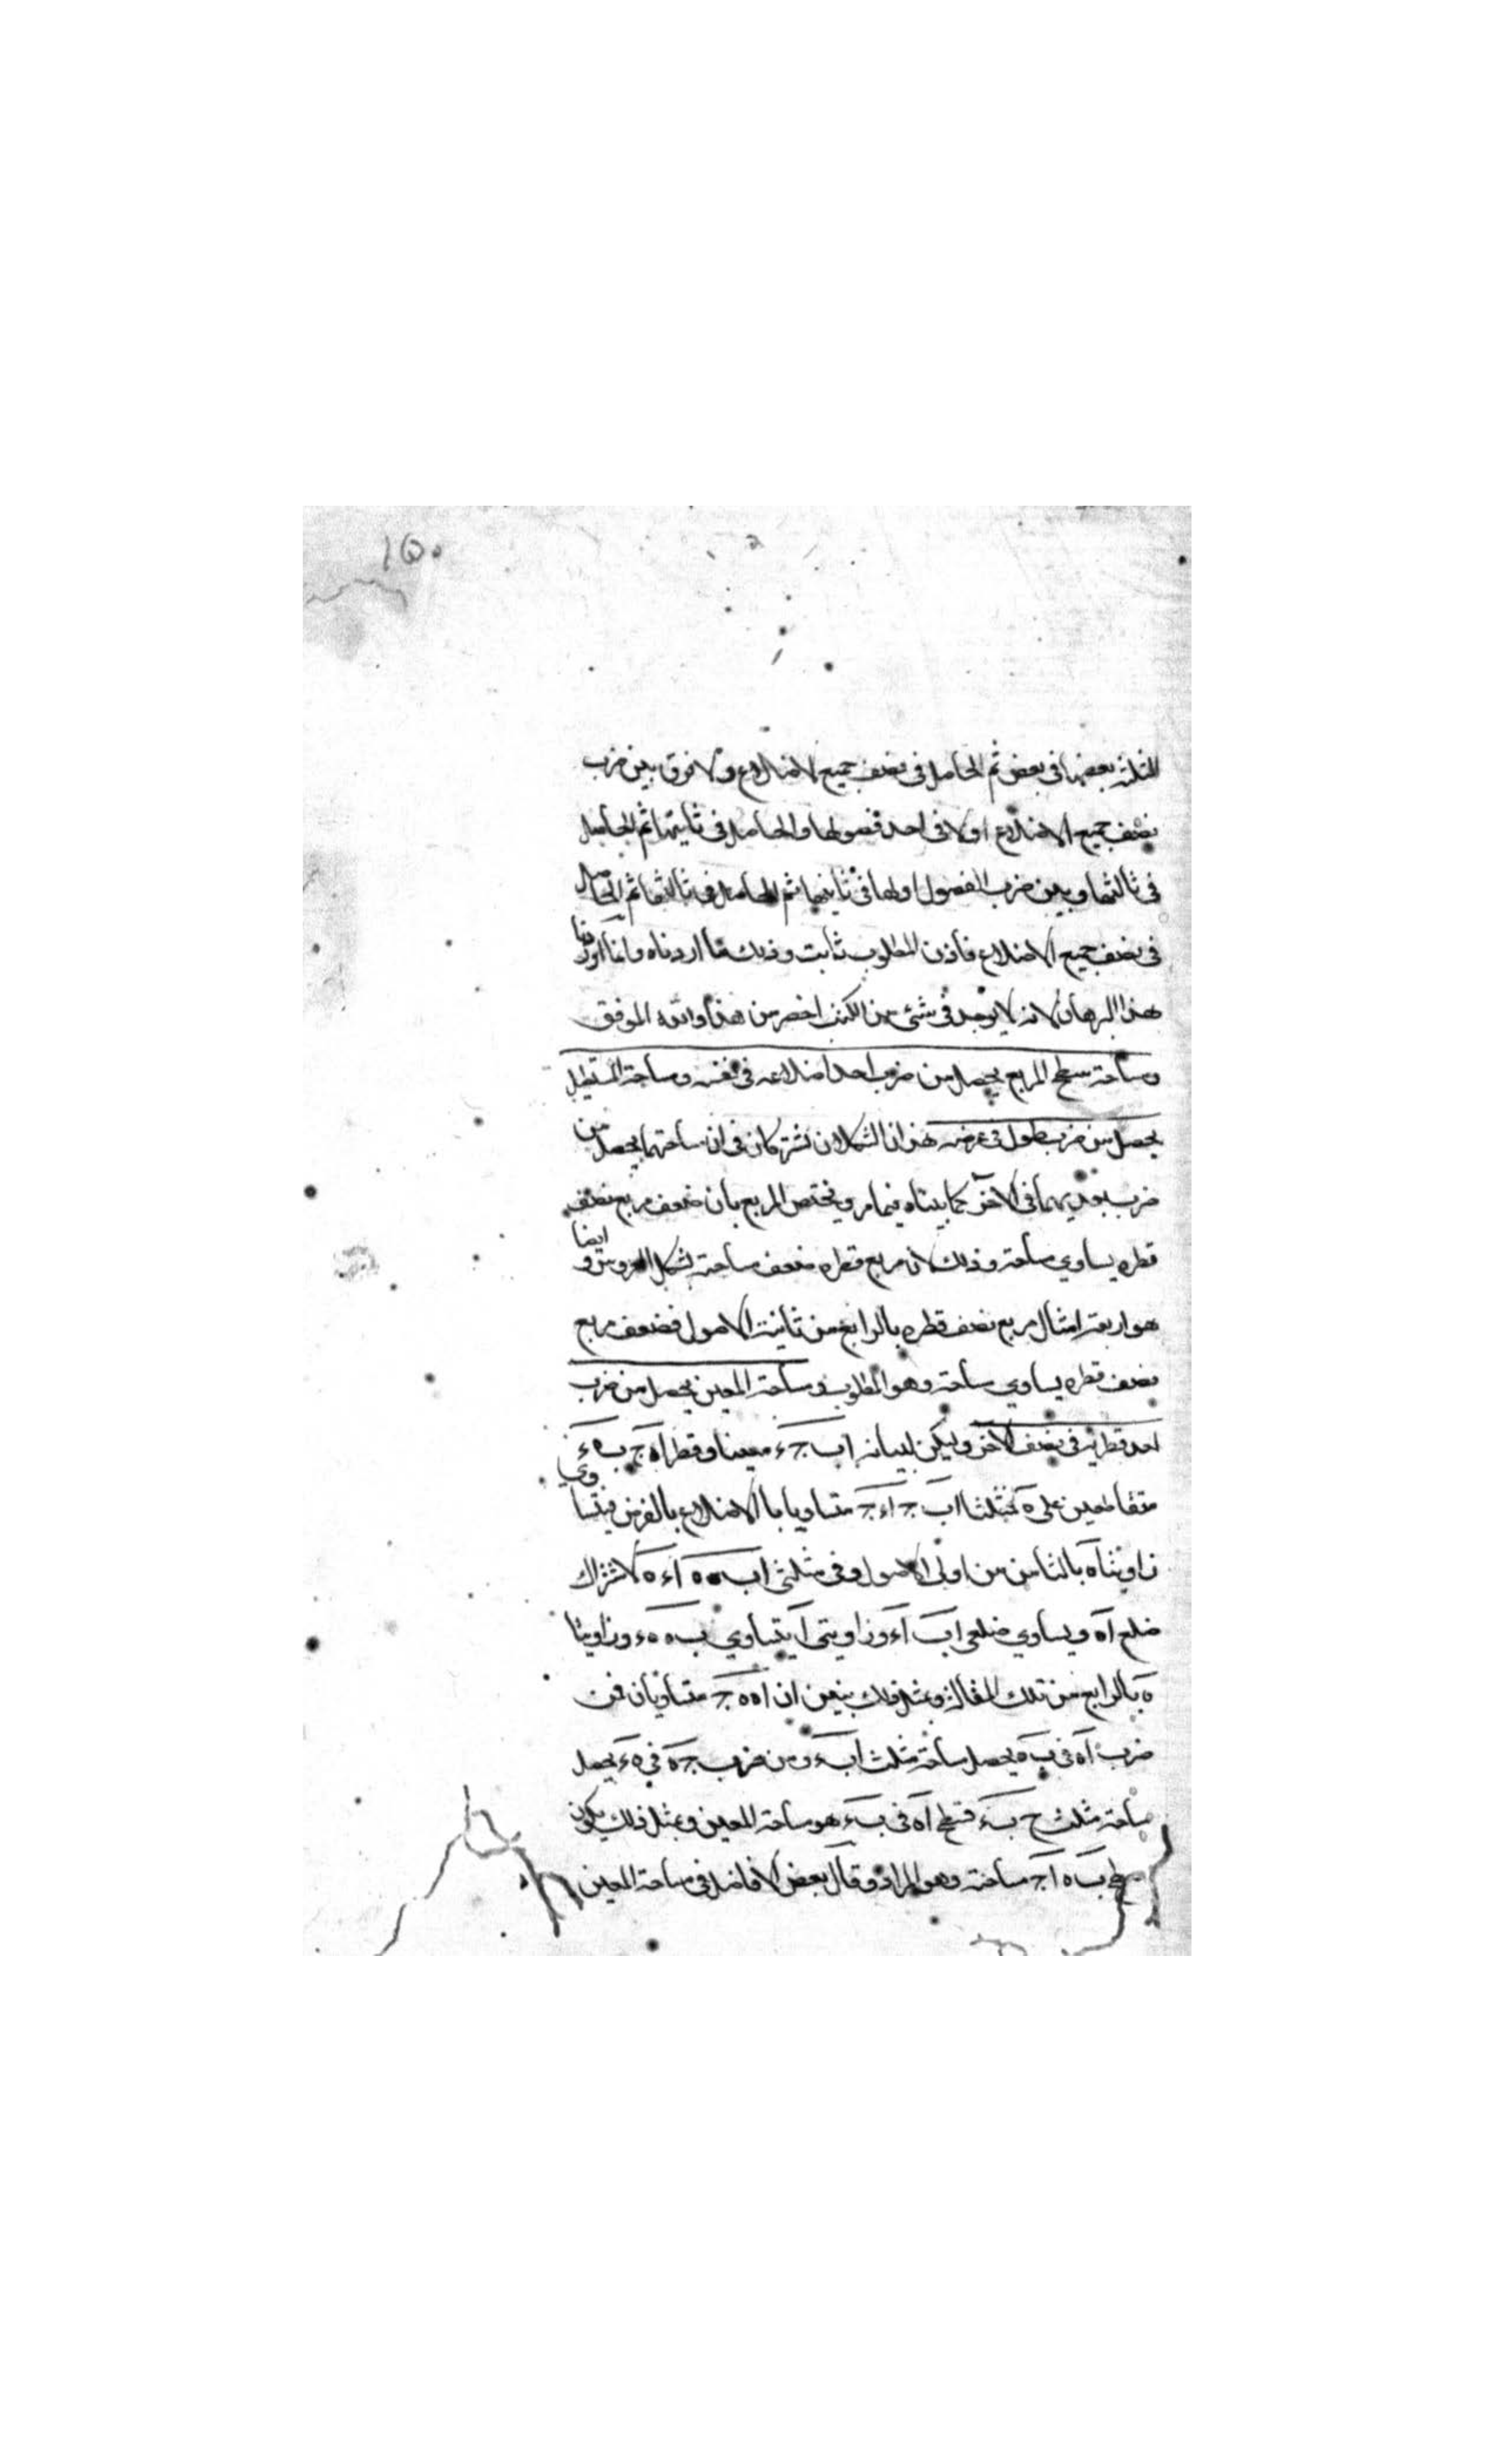 ١٥٠
الثلثة بعضها فى بعض ثم الحاصل فى نصف جميع الاضلاع ولا فرق بين ضرب
نصف جميع الاضلاع اولا فى احد فضولها والحاصل فى ثانيتها ثم الحاصل
فى ثالثها وبين ضرب الفضول اولها فى ثانيها ثم الحاصل فى ثالثها ثم الحاصل
فى نصف جميع الاضلاع فاذن المطلوب ثابت وذلك ما اردناه وانما اوردنا
هذا البرهان لانه لا يوجد فى شئ من الكتب اخصر من هذا والله الموفق
ومساحة سطح المربع يحصل من ضرب احد اضلاعه فى نفسه ومساحة المستطيل
يحصل من ضرب طوله فى عرضه هذان الشكلان تشتركان فى ان مساحتهما يحصل من
ضرب بعديهما فى الآخر كما بيناه فيما مر ويختص المربع بان ضعف مربع نصف
قطره يساوي مساحته وذلك لان مربع قطره ضعف مساحته بشكل العروس و ايضا
هو اربعة امثال مربع نصف قطره بالرابع من ثانية الاصول فضعف مربع
نصف قطره يساوي مساحته وهو المطلوب ومساحة المعين يحصل من ضرب
احد قطريه فى نصف الآخر وليكن لبيانه ا ب ج ء معينا وقطراه ا ج ب ء
متقاطعين على ه فمثلثا ا ب ج ا ء ج متساويا الاضلاع بالفرض فيتساوي
زاويتا ه بالثامن من اولى الاصول وفى مثلثى ا ب ه ا ء ه لاشتراك
ضلع ا ه ويساوي ضلعى ا ب ا ء وزاويتى ا يتساوي ب ه ه ء وزاويتا
ه بالرابع من تلك المقالة وبمثل ذلك يتبين ان ا ه ه ج متساويان فمن
ضرب ا ه فى ب ه يحصل مساحة مثلث ا ب ء ومن ضرب ج ه في ه ء يحصل
مساحة مثلث ج ب ء فسطح ا ه فى ب ء هو مساحة المعين وبمثل ذلك يكون
سطح ب ه ا ج مساحته وهو المراد وقال بعض الافاضل فى مساحة المعين